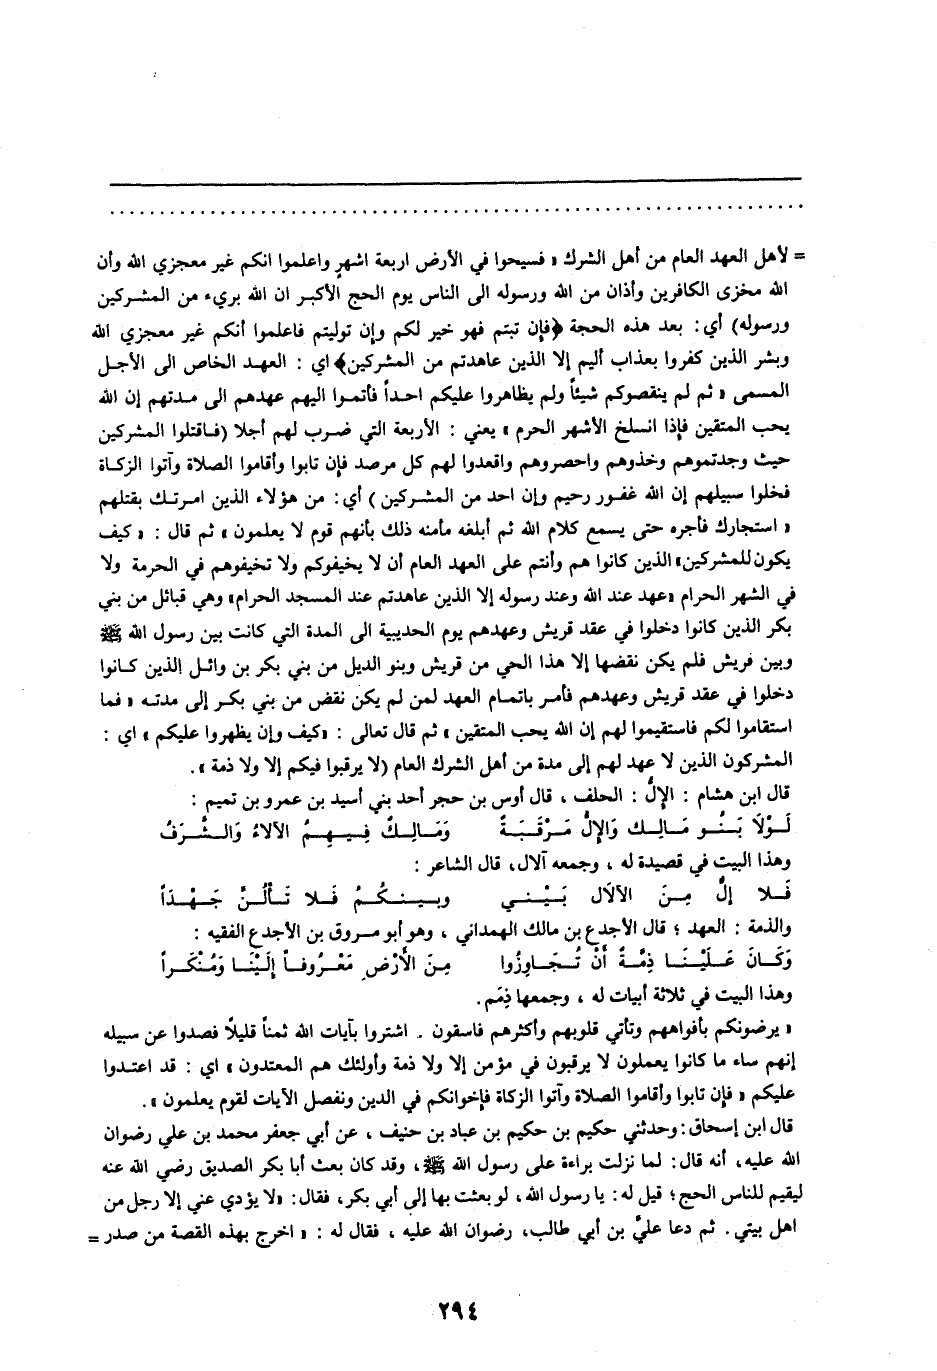 = لأهل العهد العام من أهل الشرك « فسيحوا في الأرض اربعة اشهرٍ واعلموا انكم غير معجزي الله وأن
الله مخزى الكافرين وأذان من الله ورسوله الى الناس يوم الحج الأكبر ان الله بريء من المشركين
ورسوله) أي: بعد هذه الحجة ﴿فإن تبتم فهو خير لكم وإن توليتم فاعلموا أنكم غير معجزي الله
وبشر الذين كفروا بعذاب أليم إلا الذين عاهدتم من المشركين﴾ اي : العهد الخاص الى الأجل
المسمى « ثم لم ينقصوكم شيئاً ولم يظاهروا عليكم احداً فأتموا اليهم عهدهم الى مدتهم إن الله
يحب المتقين فإذا انسلخ الأشهر الحرم » يعني : الأربعة التي ضرب لهم أجلا (فاقتلوا المشركين
حيث وجدتموهم وخذوهم واحصروهم واقعدوا لهم كل مرصد فإن تابوا وأقاموا الصلاة وآتوا الزكاة
فخلوا سبيلهم إن الله غفور رحيم وإن احد من المشركين ) أي: من هؤلاء الذين امرتك بقتلهم
« استجارك فأجره حتى يسمع كلام الله ثم أبلغه مأمنه ذلك بأنهم قوم لا يعلمون » ثم قال : « كيف
يكون للمشركين» الذين كانوا هم وأنتم على العهد العام أن لا يخيفوكم ولا تخيفوهم في الحرمة ولا
في الشهر الحرام «عهد عند الله وعند رسوله إلا الذين عاهدتم عند المسجد الحرام» وهي قبائل من بني
بكر الذين كانوا دخلوا في عقد قريش وعهدهم يوم الحديبية الى المدة التي كانت بين رسول الله ﷺ
وبين قريش فلم يكن نقضها إلا هذا الحي من قريش وبنو الديل من بني بكر بن وائل الذين كانوا
دخلوا في عقد قريش وعهدهم فأمر باتمام العهد لمن لم يكن نقض من بني بكر إلى مدته « فما
استقاموا لكم فاستقيموا لهم إن الله يحب المتقين » ثم قال تعالى : «كيف وإن يظهروا عليكم » اي :
المشركون الذين لا عهد لهم إلى مدة من أهل الشرك العام (لا يرقبوا فيكم إلا ولا ذمة ».
قال ابن هشام : الإلُّ : الحلف ، قال أوس بن حجر أحد بني أسيد بن عمرو بن تميم :
لَوْلَا بَنُو مَالِك وَالإلُّ مَرْقَبَةٌ وَمَالِكٌ فِيهِمُ الآلاءُ وَالشَّرَفُ
وهذا البيت في قصيدة له ، وجمعه آلال، قال الشاعر :
فَلا إلٌّ مِنَ الآلَالِ بَيْني وبينكُمْ فَلا تَأْلُنَّ جَهْدَاً
والذمة : العهد ؛ قال الأجدع بن مالك الهمداني ، وهو أبو مروق بن الأجدع الفقيه :
وَكَانَ عَلَيْنَا ذِمَّةٌ أَنْ تُجَاوِزُوا مِنَ الأَرْضِ مَعْرُوفاً إلَيْنَا وَمُنْكَراً
وهذا البيت في ثلاثة أبيات له ، وجمعها ذِمَم.
« يرضونكم بأفواههم وتأبي قلوبهم وأكثرهم فاسقون . اشتروا بآيات الله ثمناً قليلاً فصدوا عن سبيله
إنهم ساء ما كانوا يعملون لا يرقبون في مؤمن إلا ولا ذمة وأولئك هم المعتدون » اي : قد اعتدوا
عليكم « فإن تابوا وأقاموا الصلاة وآتوا الزكاة فإخوانكم في الدين ونفصل الآيات لقوم يعلمون ».
قال ابن إسحاق: وحدثني حكيم بن حكيم بن عباد بن حنيف ، عن أبي جعفر محمد بن علي رضوان
الله عليه، أنه قال: لما نزلت براءة على رسول الله ﷺ، وقد كان بعث أبا بكر الصديق رضي الله عنه
ليقيم للناس الحج؛ قيل له: يا رسول الله، لو بعثت بها إلى أبي بكر، فقال: «لا يؤدي عني إلا رجل من
اهل بيتي. ثم دعا عليَّ بن أبي طالب، رضوان الله عليه ، فقال له : « اخرج بهذه القصة من صدر =
٢٩٤